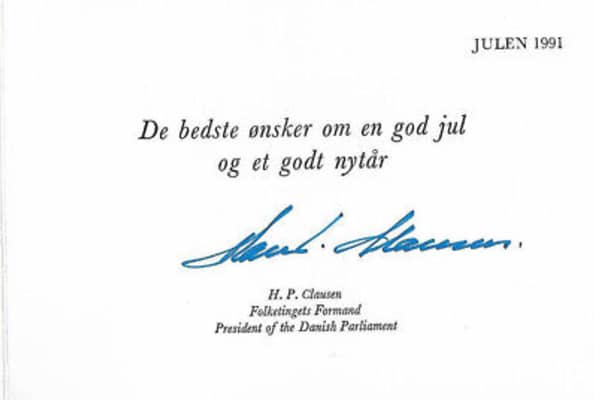 JULEN 1991
De bedste ønsker om en god jul
og et godt nytår
H. P. Clausen
Folketingets Formand
President of the Danish Parliament